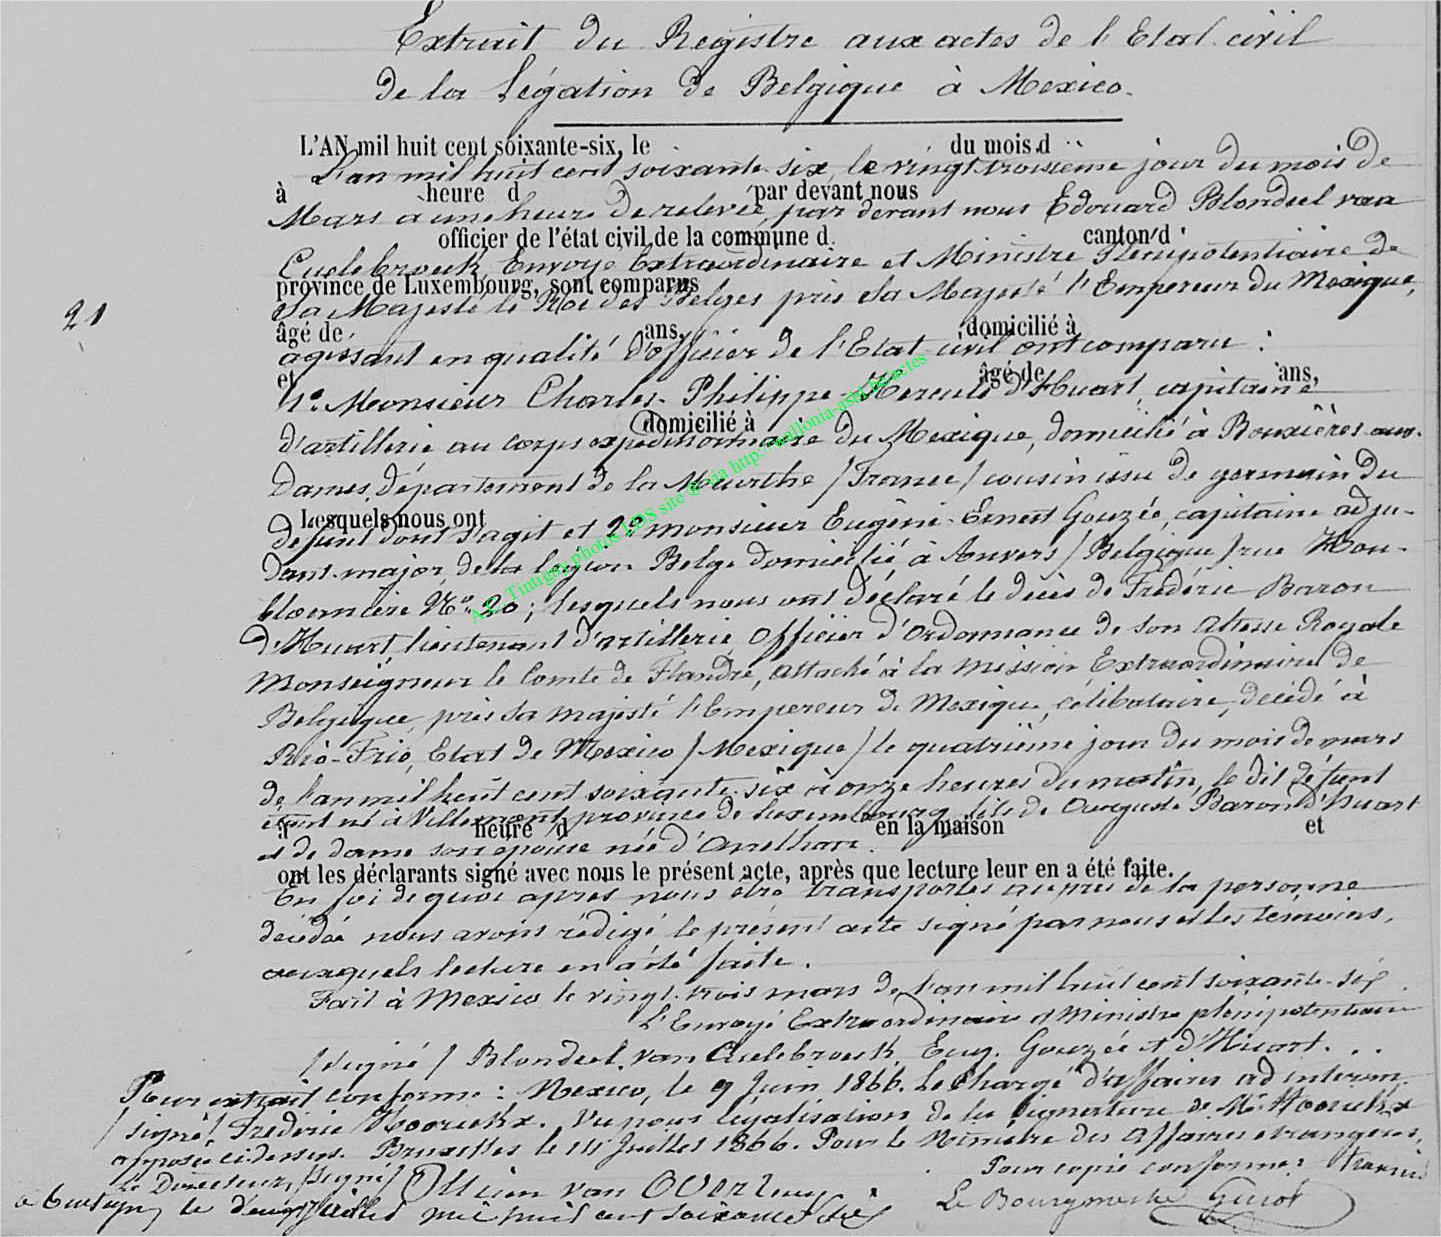 Extrait du Registre aux actes de l'Etat civil
de la Légation de Belgique à Mexico.
L'AN mil huit cent soixante-six, le du mois d
L'an mil huit cent soixante six, le vingt troisième jour du mois de
à heure d par devant nous
Mars à une heure de relevée, par devant nous Edouard Blondeel van
officier de l'état civil de la commune d canton d
Cuelebroeck, Envoyé Extraordinaire et Ministre Plénipotentiaire de
province de Luxembourg, sont comparus
Sa Majesté le Roi des Belges près Sa Majesté l'Empereur du Mexique,
21
âgé de ans, domicilié à
agissant en qualité d'officier de l'Etat civil ont comparu :
et âgé de ans,
1° Monsieur Charles-Philippe-Hercule d'Huart, capitaine
domicilié à
d'artillerie au corps expéditionnaire du Mexique, domicilié à Bouxières aux
Dames, département de la Meurthe / France / cousin issu de germain du
Lesquels nous ont
défunt dont s'agit et 2° monsieur Eugène-Ernest Gouzée, capitaine adju-
dant-major, de la légion Belge domicilié à Anvers / Belgique / rue
N° 20 ; lesquels nous ont déclaré le décès de Frédéric Baron
d'Huart lieutenant d'artillerie, Officier d'Ordonnance de Son Altesse Royale
Monseigneur le Comte de Flandre, attaché à la Mission Extraordinaire de
Belgique, près Sa Majesté l'Empereur du Mexique, célibataire, décédé à
Rio-Frio, Etat de Mexico / Mexique / le quatrième jour du mois de mars
de l'an mil huit cent soixante-six à onze heures du matin, le dit défunt
étant né à Villemont province de Luxembourg, fils de Auguste Baron d'Huart
à heure d en la maison et
et de dame son épouse née d'Anethan.
ont les déclarants signé avec nous le présent acte, après que lecture leur en a été faite.
En foi de quoi après nous être transportés auprès de la personne
décédée nous avons rédigé le présent acte signé par nous et les témoins,
auxquels lecture en a été faite.
Fait à Mexico le vingt-trois mars de l'an mil huit cent soixante-six
L'Envoyé Extraordinaire et Ministre plénipotentiaire
/ signé / Blondeel van Cuelebroeck, Eug. Gouzée et d'Huart...
Pour extrait conforme : Mexico, le 9 Juin 1866. Le Chargé d'affaires ad interim
/ signé / Frédéric Hooricks. Vu pour légalisation de la signature de Mr Hooricks
apposée ci-dessus. Bruxelles le 14 Juillet 1866. Pour le Ministre des Affaires étrangères,
le Directeur, / signé /
Pour copie conforme :
le mil huit cent soixante six
Le Bourgmestre
A.E. Tintigny photos LDS site @ via http://wallonia-asbl.be/actes